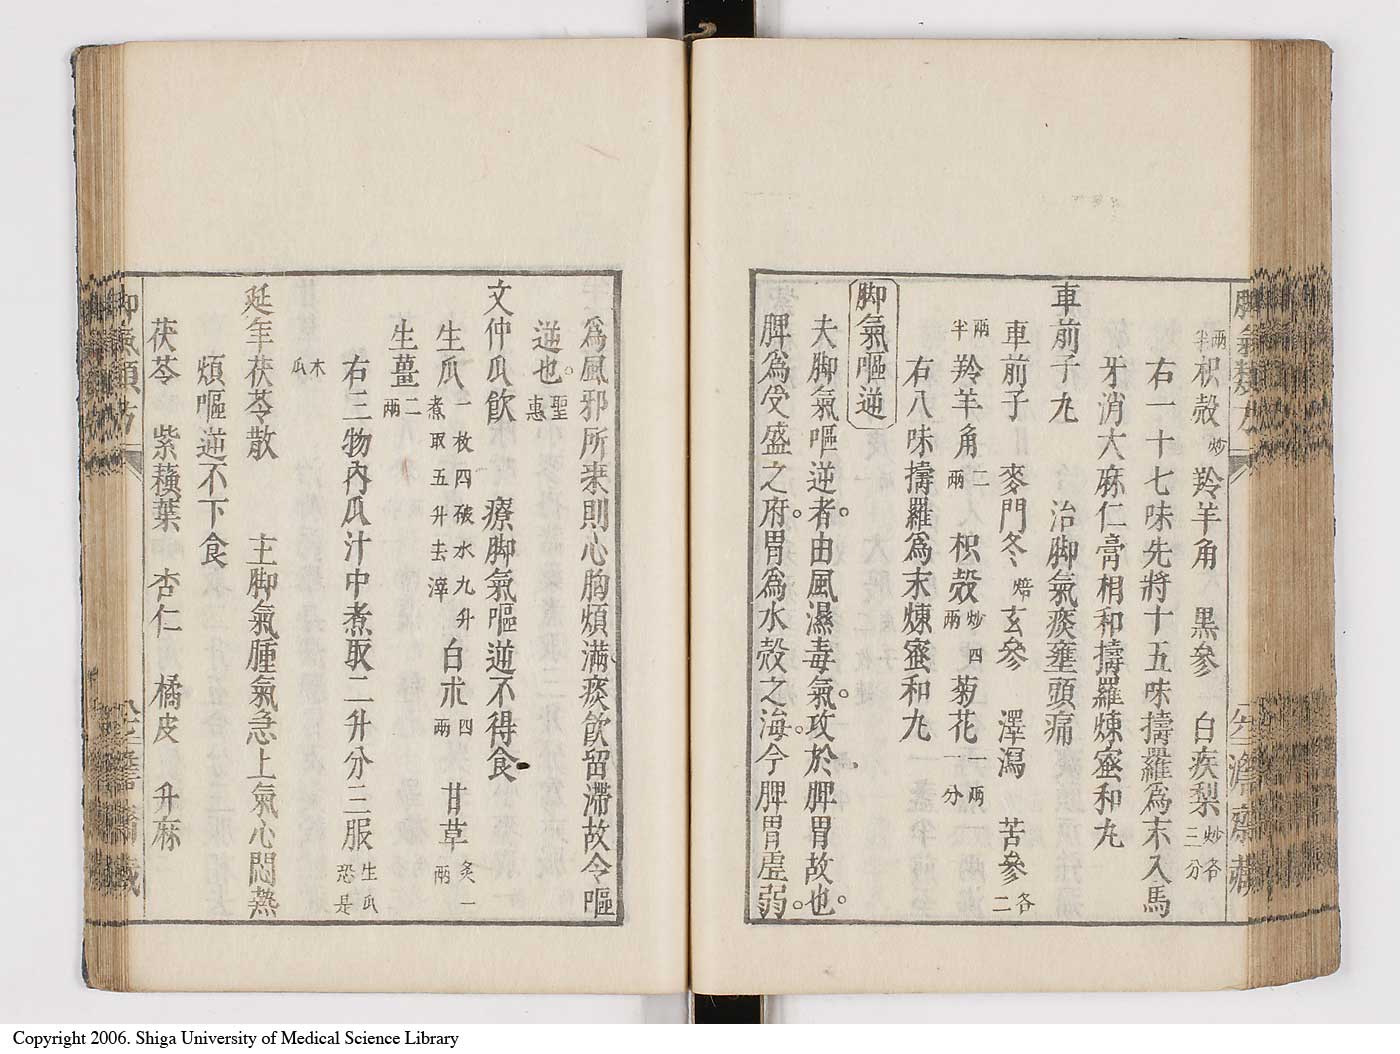 兩半枳殻炒 羚羊角 黒參 白疾梨炒各三分
右一十七味先將十五味擣羅為末入馬
牙消大麻仁膏相和擣羅煉蜜和丸
車前子丸 治脚氣痰壅頭痛
車前子 麥門冬焙 玄參 澤瀉 苦參各二
兩半 羚羊角二兩 枳殻炒四兩 菊花一兩一分
右八味擣羅為末煉蜜和丸
脚氣嘔逆
夫脚氣嘔逆者。由風濕毒氣。攻於脾胃故也。
脾為受盛之府。胃為水穀之海。今脾胃虛弱。
為風邪所乗則心胸煩滿。痰飮留滞故令嘔
逆也。聖惠
文仲瓜飮 療脚氣嘔逆不得食
生瓜一枚四破水九升煮取五升去滓 白朮四兩 甘草炙一兩
生薑二兩
右三物內瓜汁中煮取二升分三服生瓜恐是
木瓜
延年茯苓散 主脚氣腫氣急上氣心悶熱
煩嘔逆不下食
茯苓 紫蘓葉 杏仁 橘皮 升麻
脚氣類方
脚氣類方
Copyright 2006. Shiga University of Medical Science Library